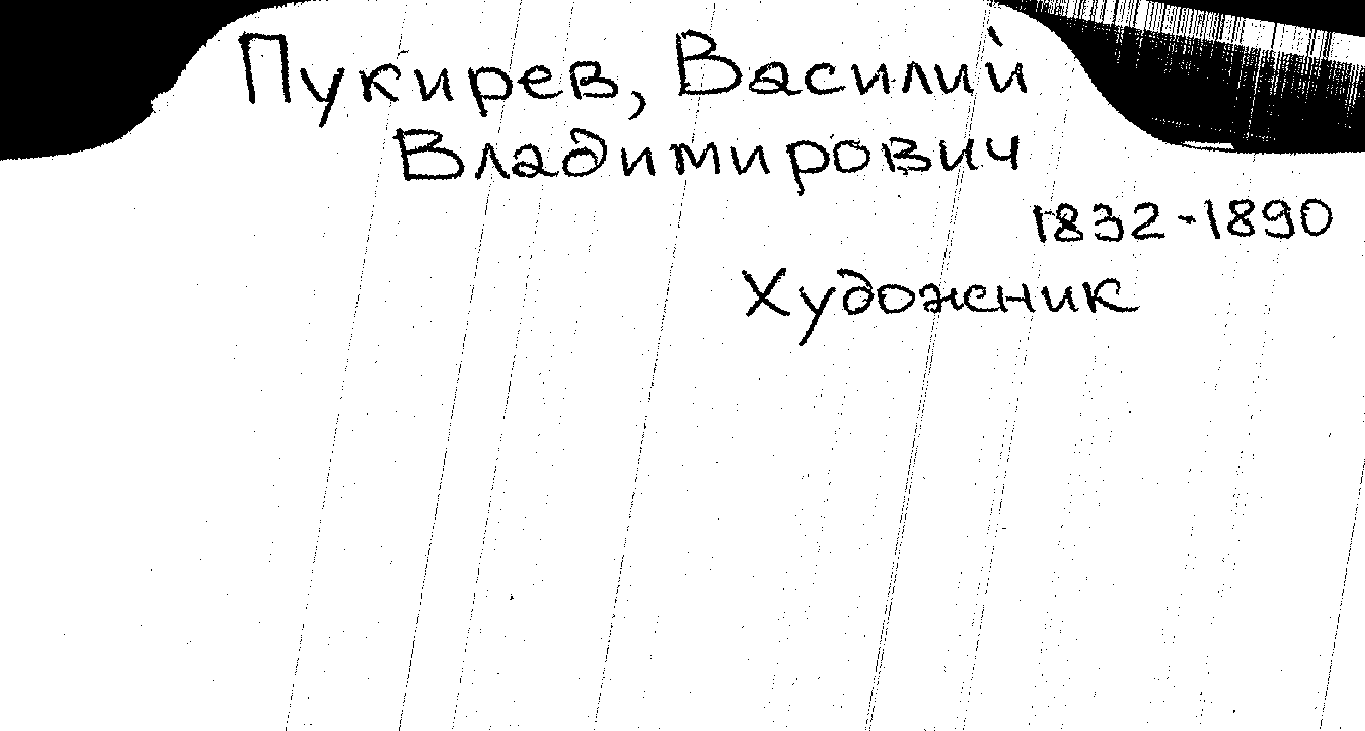 Пукирев, Василий
Владимирович
1832-1890
Художник